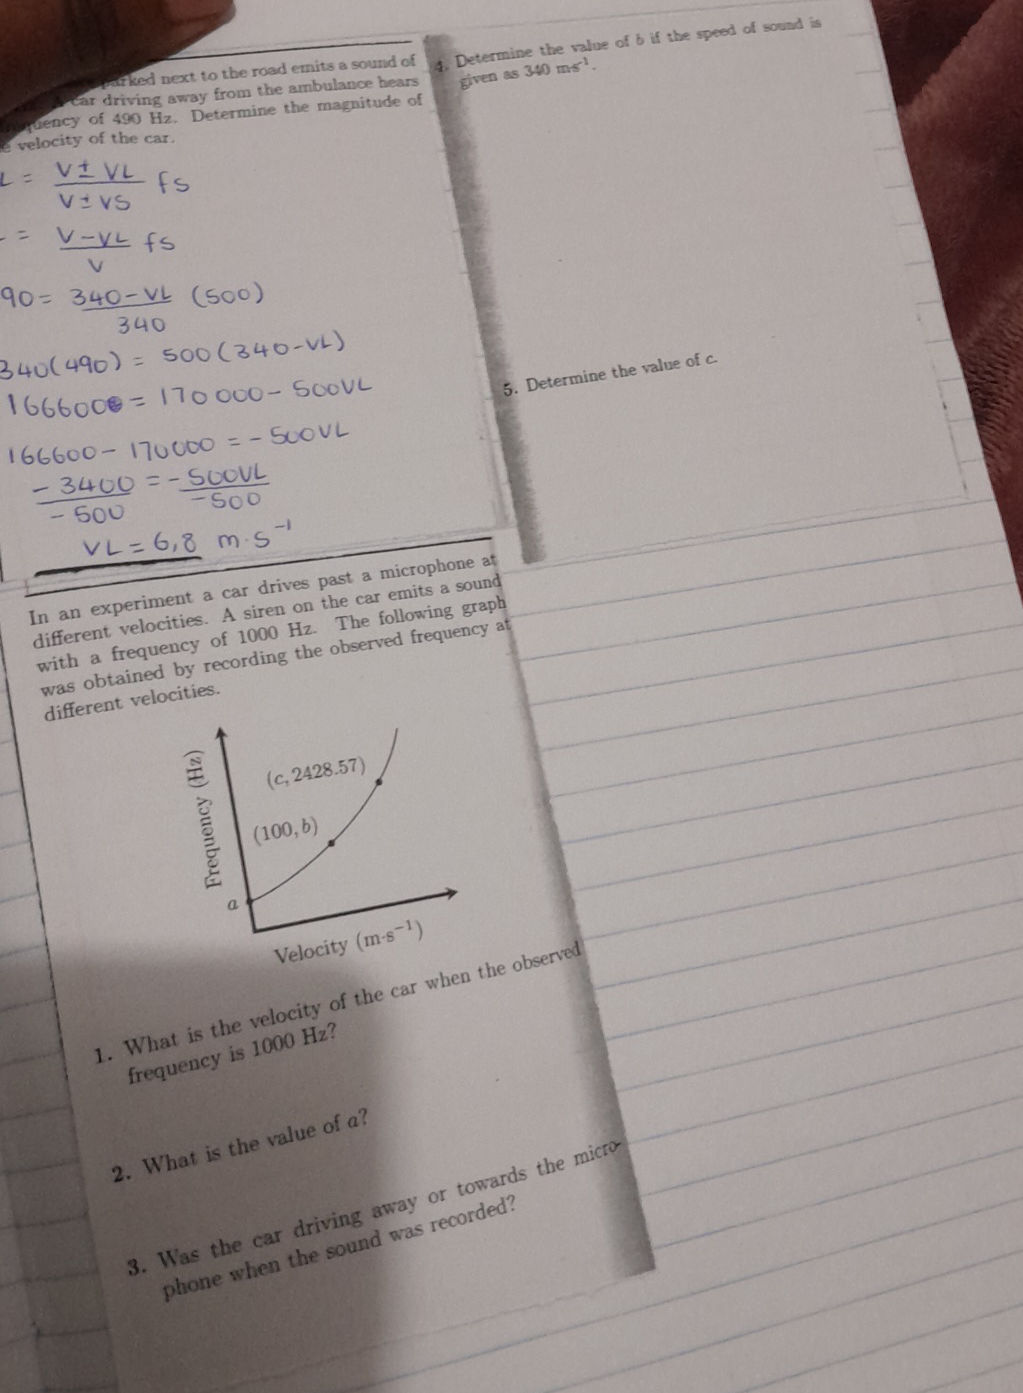 parked next to the road emits a sound of
car driving away from the ambulance hears
of 490 Hz. Determine the magnitude of
velocity of the car.
= V ± VL / V ± VS fs
= V - VL / V fs
90 = 340 - VL / 340 (500)
340(490) = 500(340-VL)
166600 = 170 000 - 500VL
166600 - 170000 = - 500VL
- 3400 / - 500 = - 500VL / - 500
VL = 6,8 m·s⁻¹
In an experiment a car drives past a microphone at
different velocities. A siren on the car emits a sound
with a frequency of 1000 Hz. The following graph
was obtained by recording the observed frequency at
different velocities.
Frequency (Hz)
(c, 2428.57)
(100, b)
a
Velocity (m·s⁻¹)
1. What is the velocity of the car when the observed
frequency is 1000 Hz?
2. What is the value of a?
3. Was the car driving away or towards the micro-
phone when the sound was recorded?
4. Determine the value of b if the speed of sound is
given as 340 m·s⁻¹.
5. Determine the value of c.